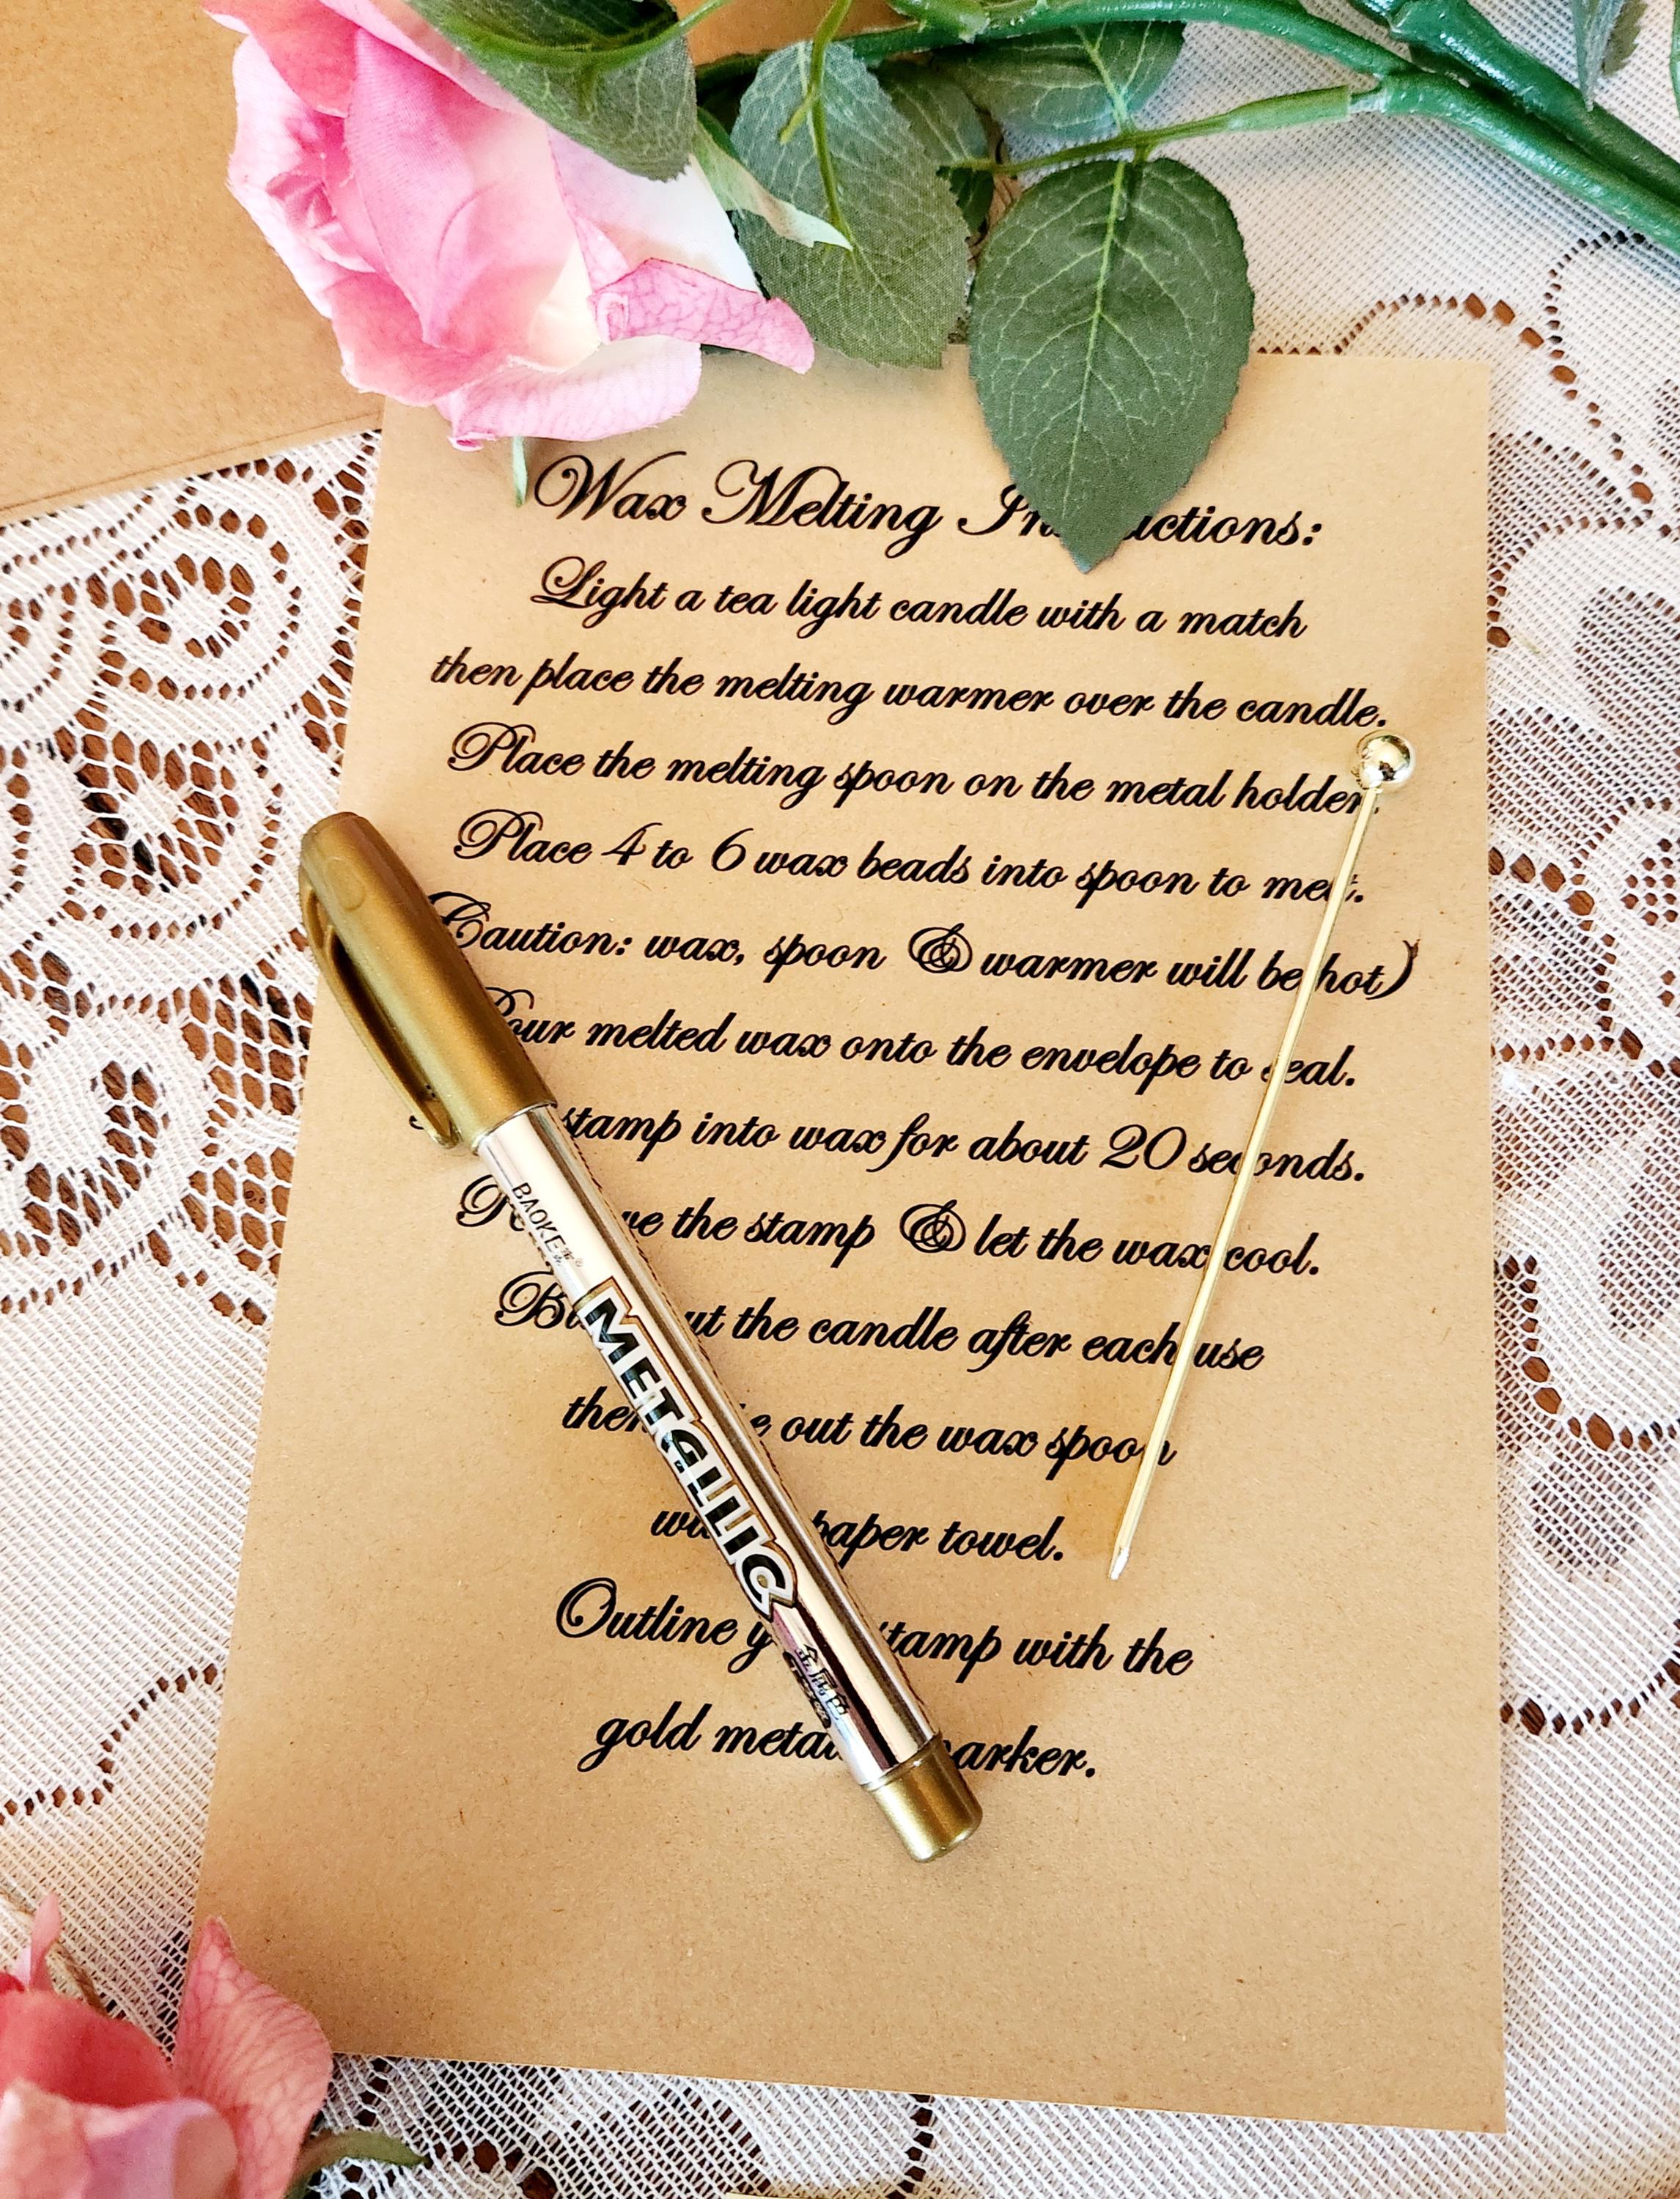 Wax Melting Instructions:
Light a tea light candle with a match
then place the melting warmer over the candle.
Place the melting spoon on the metal holder.
Place 4 to 6 wax beads into spoon to melt.
Caution: wax, spoon & warmer will be hot)
Pour melted wax onto the envelope to seal.
stamp into wax for about 20 seconds.
Remove the stamp & let the wax cool.
Blow out the candle after each use
then out the wax spoon
paper towel.
Outline your stamp with the
gold metallic marker.
BAOKE
METALLIC